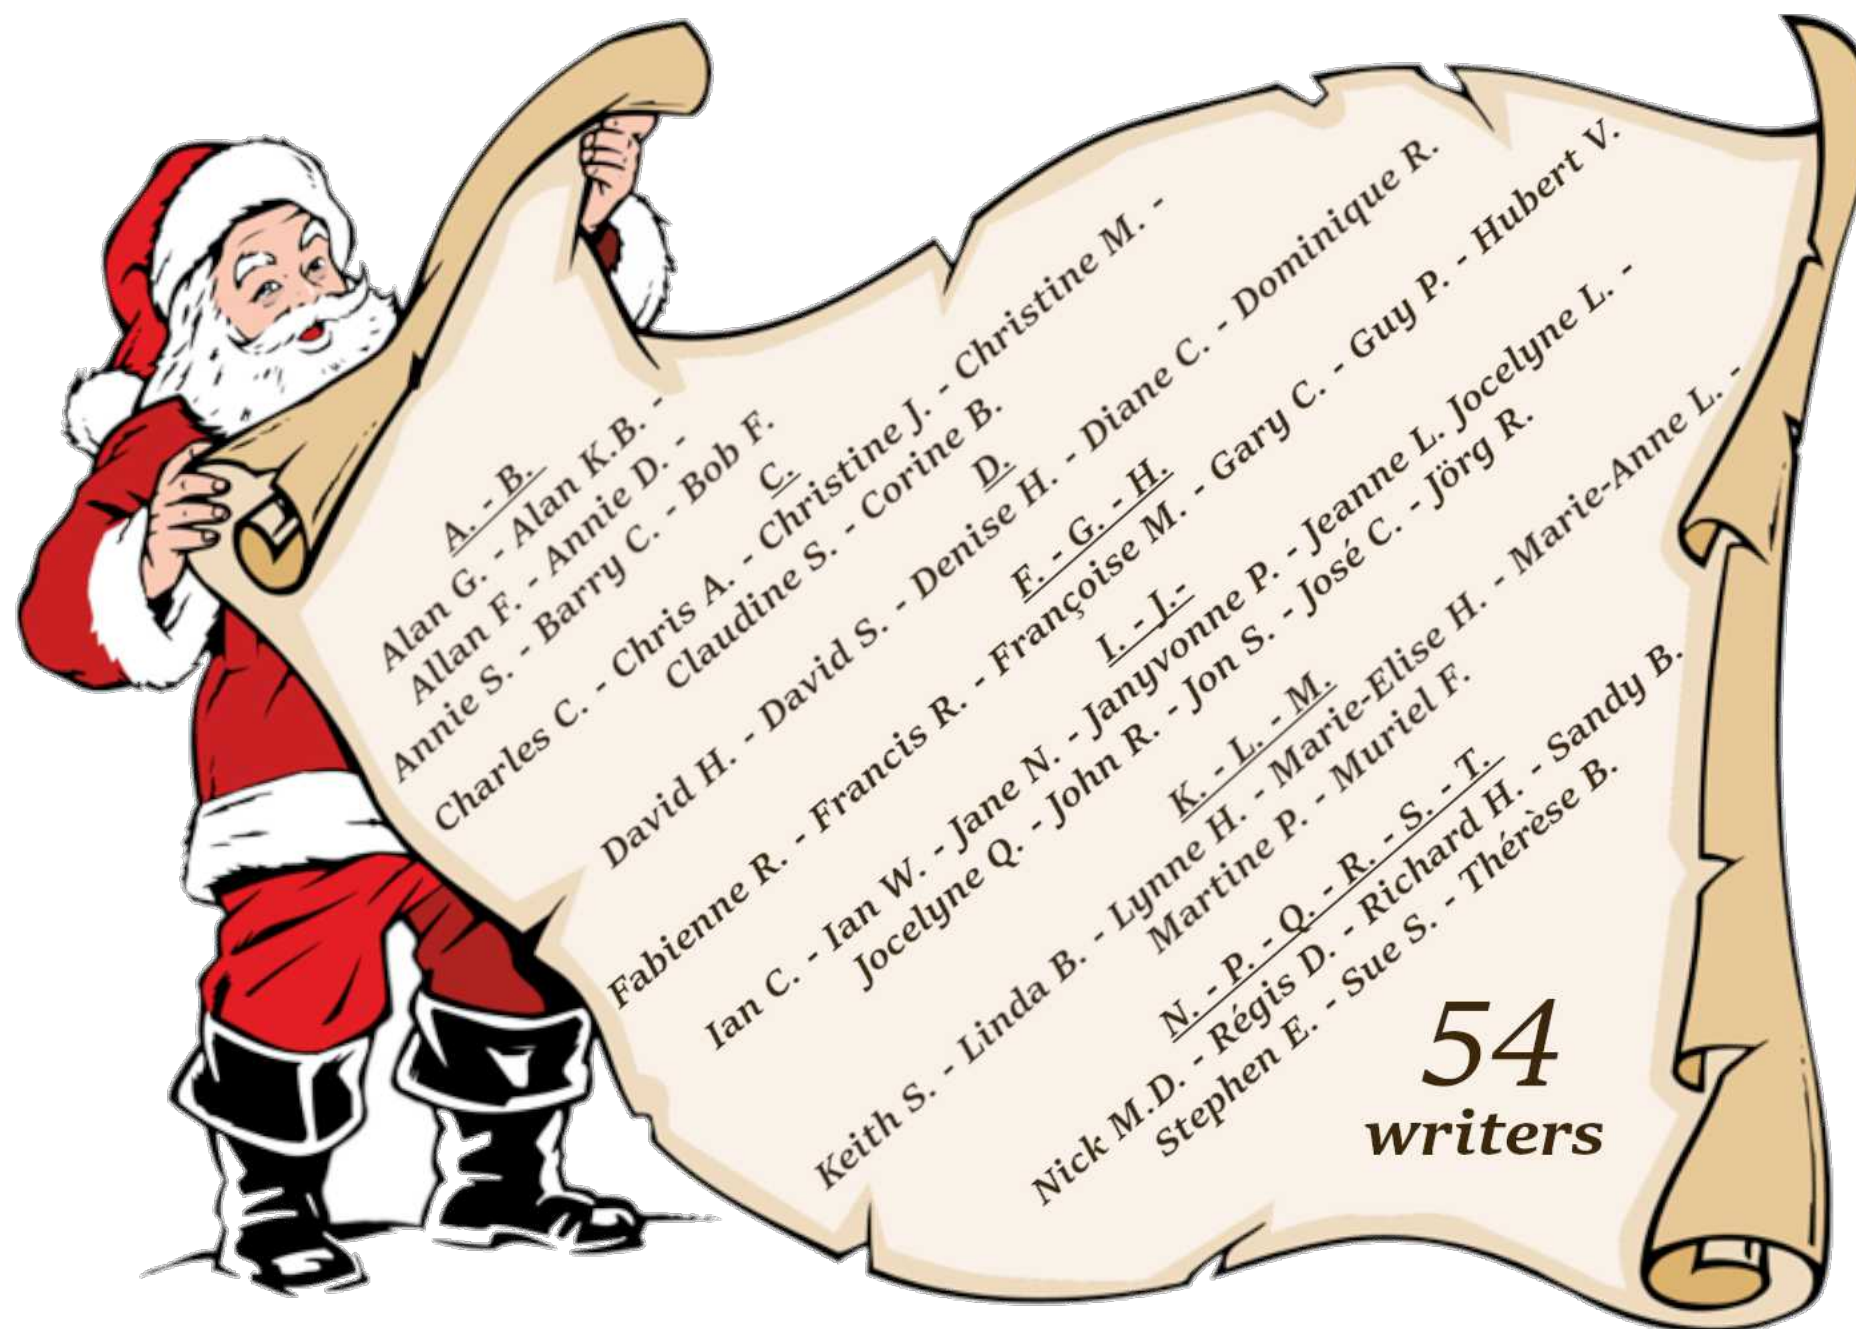 A. - B.
Alan G. - Alan K.B. -
Allan F. - Annie D. -
Annie S. - Barry C. - Bob F.
C.
Charles C. - Chris A. - Christine J. - Christine M. -
Claudine S. - Corine B.
D.
David H. - David S. - Denise H. - Diane C. - Dominique R.
F. - G. - H.
Fabienne R. - Francis R. - Françoise M. - Gary C. - Guy P. - Hubert V.
I. - J.-
Ian C. - Ian W. - Jane N. - Janyvonne P. - Jeanne L. Jocelyne L. -
Jocelyne Q. - John R. - Jon S. - José C. - Jörg R.
K. - L. - M.
Keith S. - Linda B. - Lynne H. - Marie-Elise H. - Marie-Anne L. -
Martine P. - Muriel F.
N. - P. - Q. - R. - S. - T.
Nick M.D. - Régis D. - Richard H. - Sandy B.
Stephen E. - Sue S. - Thérèse B.
54
writers